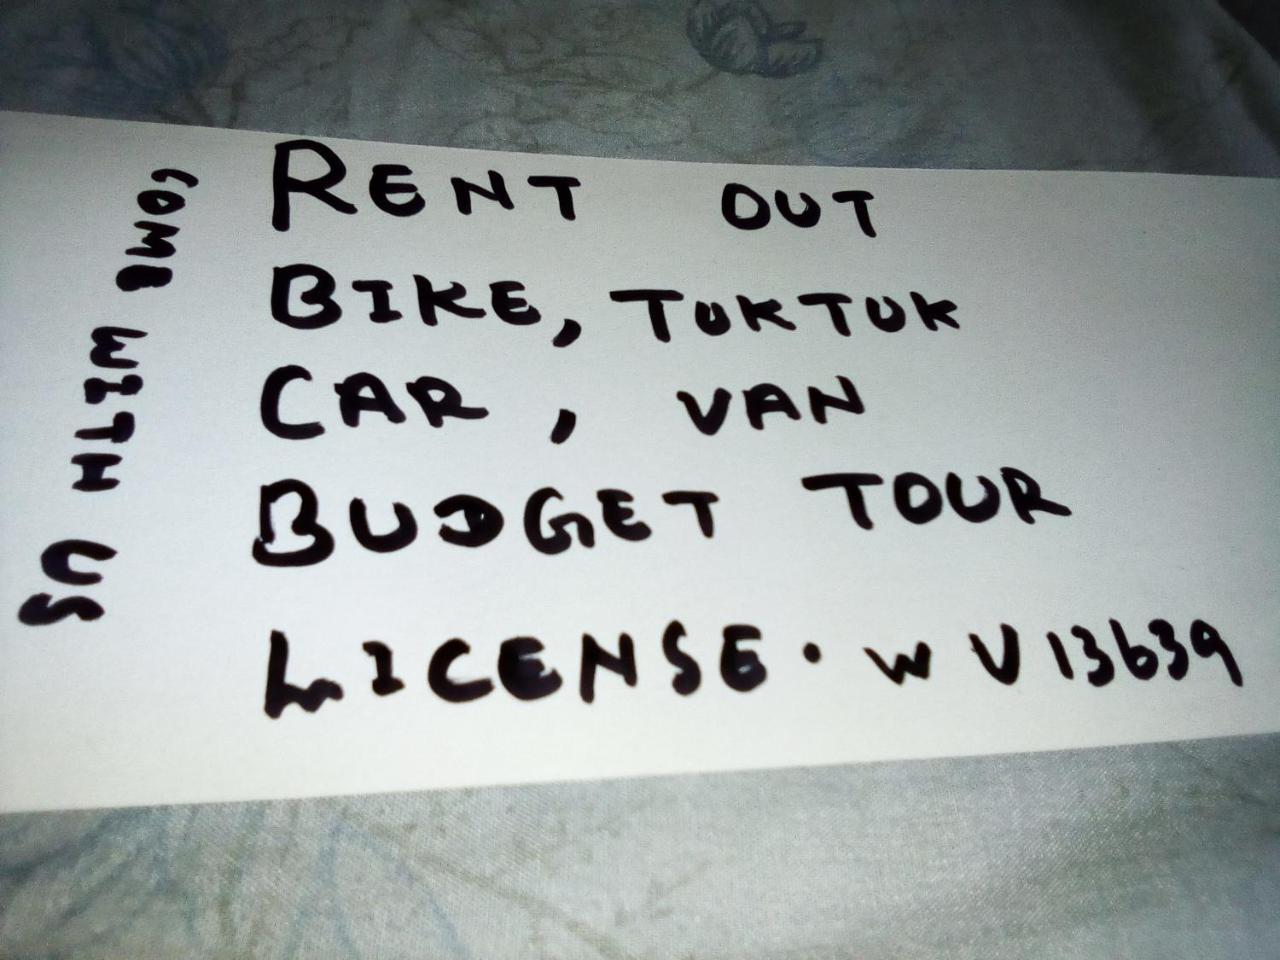 COME WITH US
RENT OUT
BIKE, TUKTUK
CAR, VAN
BUDGET TOUR
LICENSE. WV13639